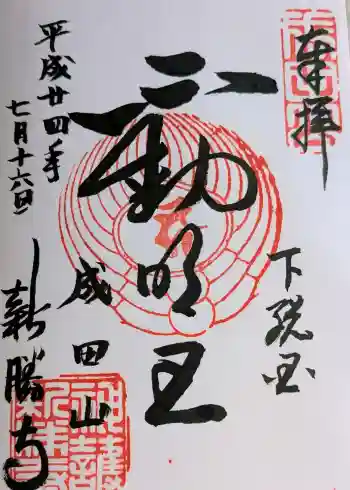 奉拝
下総国
不動明王
成田山
新勝寺
平成廿四年
七月十六日